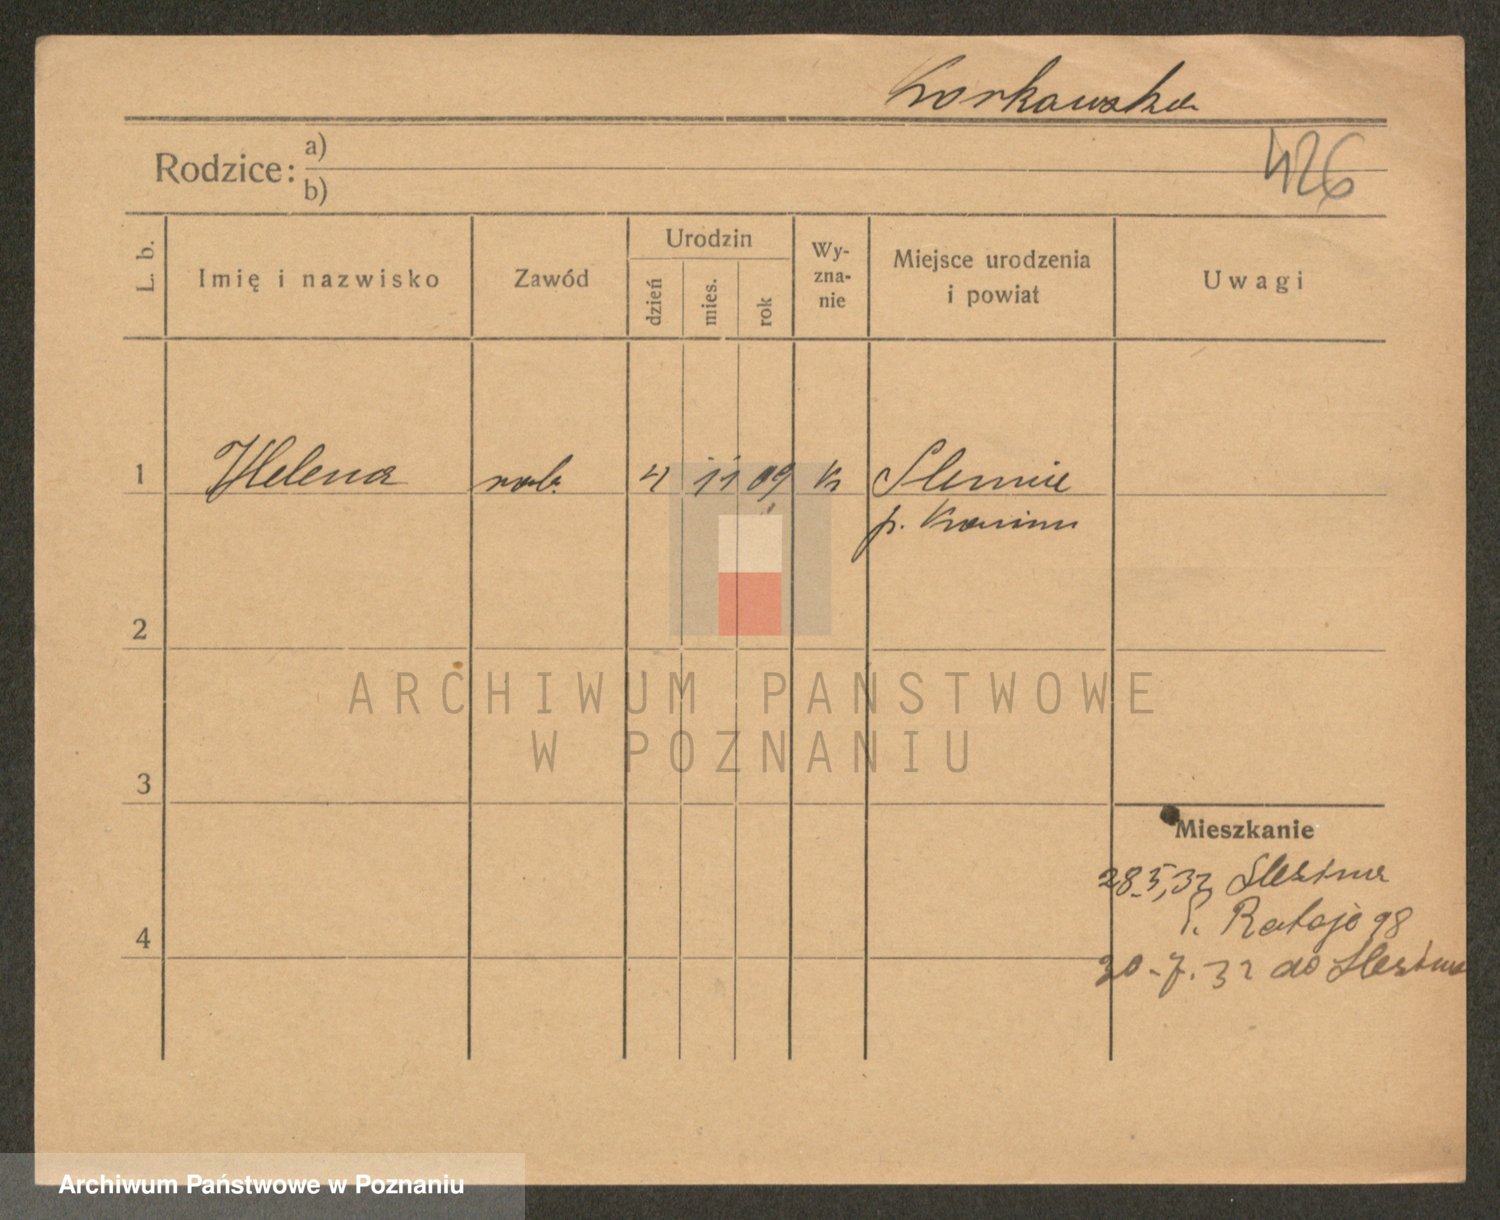 Korkawska
426
Rodzice: a)
b)
L. b.
Imię i nazwisko
Zawód
Urodzin
dzień
mies.
rok
Wy-
zna-
nie
Miejsce urodzenia
i powiat
Uwagi
1 Helena rob. 4 11 09 k
p. Konin
2
3
4
Mieszkanie
28.5,32
P. Rataje 98
30-7.32 do
ARCHIWUM PAŃSTWOWE
W POZNANIU
Archiwum Państwowe w Poznaniu